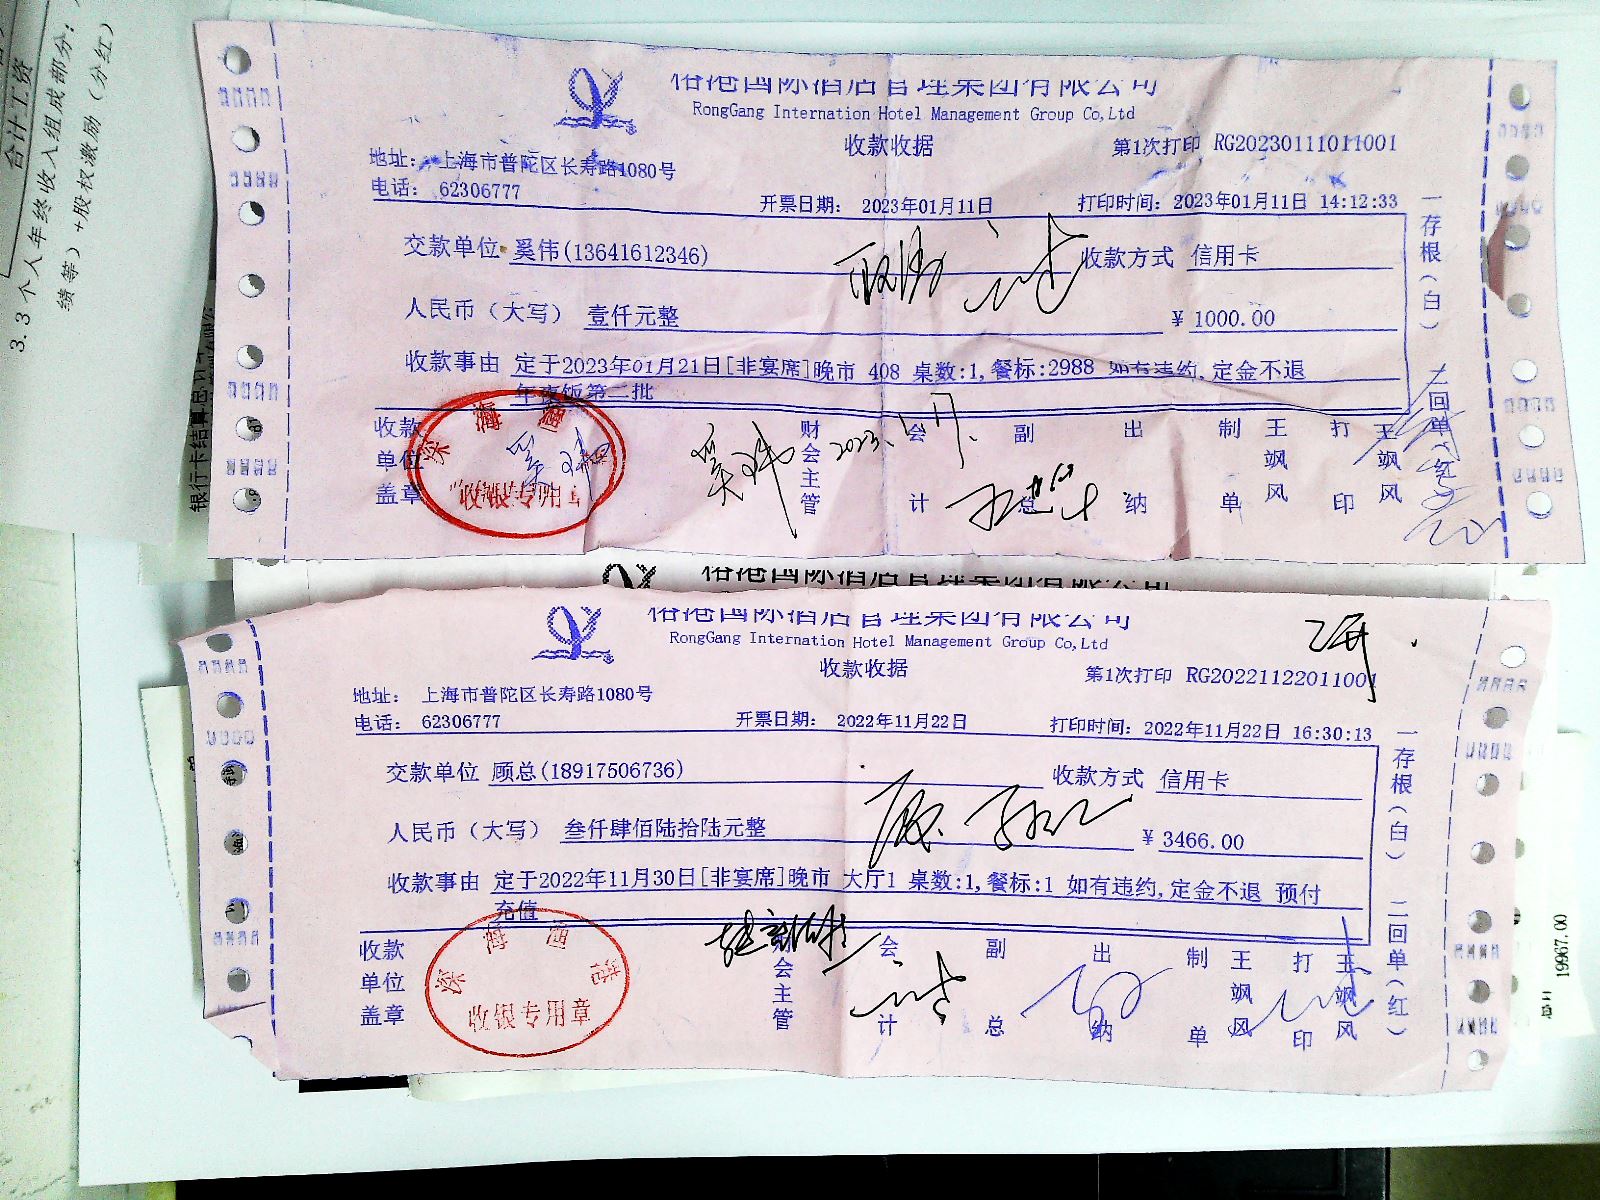 合计工资
3.3个人年终收入组成部分：
绩等）+股权激励（分红）
银行卡结算总计
裕港国际酒店管理集团有限公司
RongGang Internation Hotel Management Group Co,Ltd
收款收据
第1次打印 RG20230111011001
地址： 上海市普陀区长寿路1080号
电话： 62306777
开票日期： 2023年01月11日
打印时间：2023年01月11日 14:12:33
交款单位 奚伟(13641612346)
收款方式 信用卡
人民币（大写） 壹仟元整
¥ 1000.00
收款事由 定于2023年01月21日[非宴席]晚市 408 桌数:1,餐标:2988 如有违约,定金不退
年夜饭第二批
收款单位盖章
财会主管
会计
副总
出纳
制单
王飒风
打印
王飒风
一存根（白）
二回单（红）
收银专用章
奚玮
2023.1月
裕港国际酒店管理集团有限公司
裕港国际酒店管理集团有限公司
RongGang Internation Hotel Management Group Co,Ltd
收款收据
第1次打印 RG20221122011001
地址： 上海市普陀区长寿路1080号
电话： 62306777
开票日期： 2022年11月22日
打印时间：2022年11月22日 16:30:13
交款单位 顾总(18917506736)
收款方式 信用卡
人民币（大写） 叁仟肆佰陆拾陆元整
¥ 3466.00
收款事由 定于2022年11月30日[非宴席]晚市 大厅1 桌数:1,餐标:1 如有违约,定金不退 预付
充值
收款单位盖章
会主管
会计
副总
出纳
制单
王飒风
打印
王飒风
一存根（白）
二回单（红）
收银专用章
19967.00